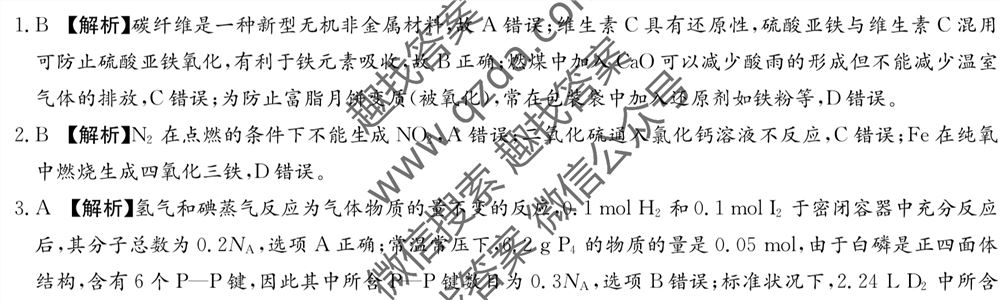 1. B 【解析】碳纤维是一种新型无机非金属材料,故 A 错误;维生素 C 具有还原性,硫酸亚铁与维生素 C 混用
可防止硫酸亚铁氧化,有利于铁元素吸收,故 B 正确;燃煤中加入 CaO 可以减少酸雨的形成但不能减少温室
气体的排放,C 错误;为防止富脂月饼变质(被氧化),常在包装袋中加入还原剂如铁粉等,D 错误。
2. B 【解析】N₂ 在点燃的条件下不能生成 NO,A 错误;二氧化硫通入氯化钙溶液不反应,C 错误;Fe 在纯氧
中燃烧生成四氧化三铁,D 错误。
3. A 【解析】氢气和碘蒸气反应为气体物质的量不变的反应,0.1 mol H₂ 和 0.1 mol I₂ 于密闭容器中充分反应
后,其分子总数为 0.2Nₐ,选项 A 正确;常温常压下,6.2 g P₄ 的物质的量是 0.05 mol,由于白磷是正四面体
结构,含有 6 个 P—P 键,因此其中所含 P—P 键数目为 0.3Nₐ,选项 B 错误;标准状况下,2.24 L D₂ 中所含
趣找答案
www.qzda.com
微信搜索 趣找答案
趣找答案 微信公众号